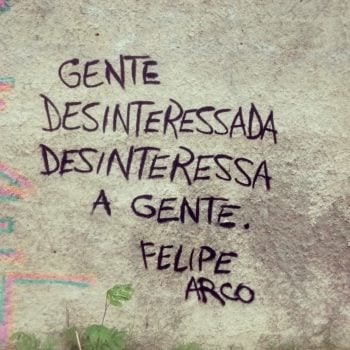 GENTE
DESINTERESSADA
DESINTERESSA
A GENTE.
FELIPE
ARCO